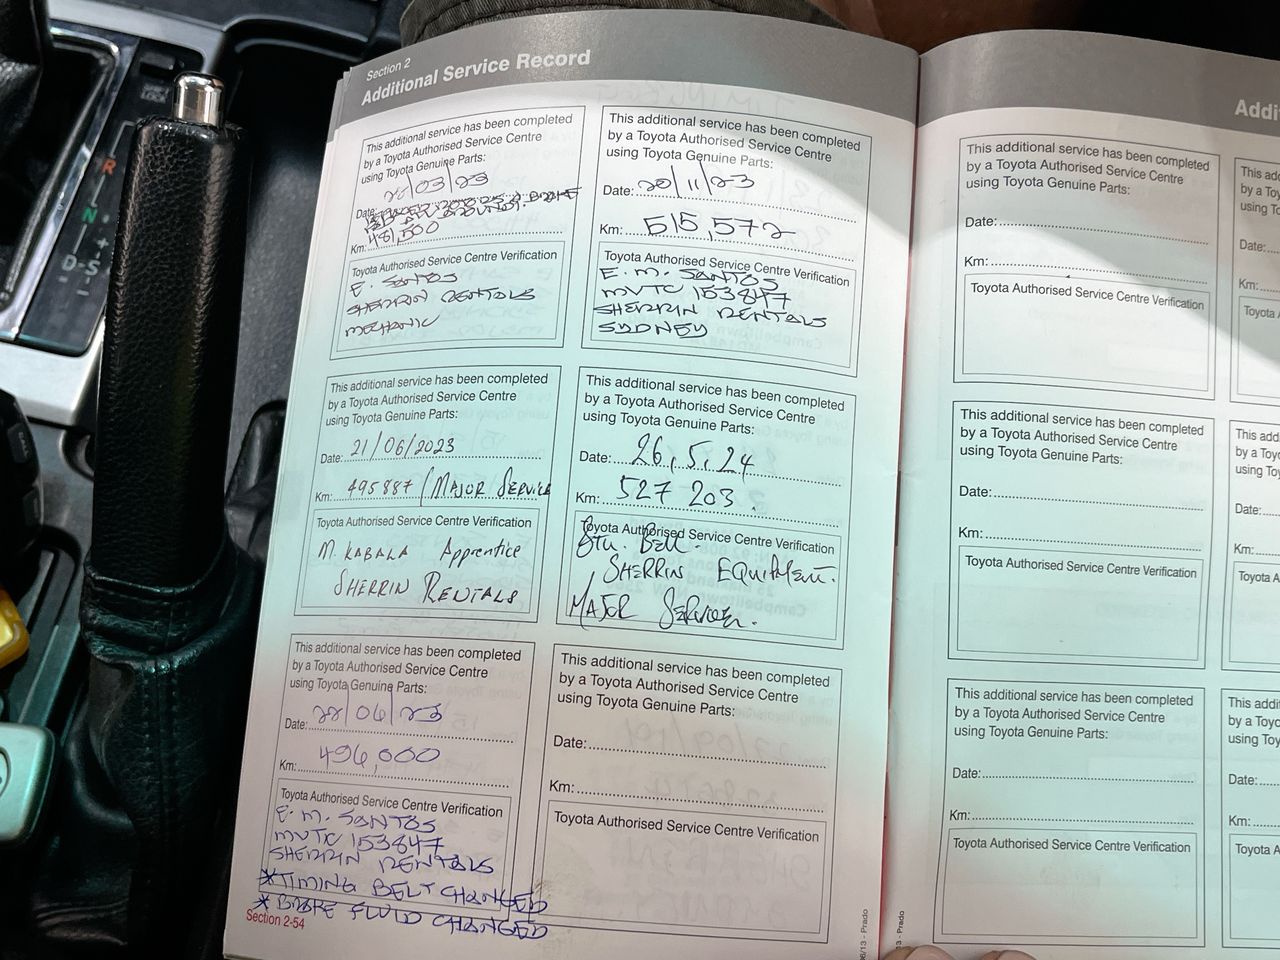 Section 2
Additional Service Record
This additional service has been completed
by a Toyota Authorised Service Centre
using Toyota Genuine Parts:
Date: 28/03/23
Km: 481,500
Toyota Authorised Service Centre Verification
E. SANTOS
SHERRIN RENTALS
MECHANIC
This additional service has been completed
by a Toyota Authorised Service Centre
using Toyota Genuine Parts:
Date: 20/11/23
Km: 515,572
Toyota Authorised Service Centre Verification
E. M. SANTOS
MVTC 153847
SHERRIN RENTALS
SYDNEY
This additional service has been completed
by a Toyota Authorised Service Centre
using Toyota Genuine Parts:
Date: 21/06/2023
Km: 495887 / MAJOR SERVICE
Toyota Authorised Service Centre Verification
M. KABALA Apprentice
SHERRIN RENTALS
This additional service has been completed
by a Toyota Authorised Service Centre
using Toyota Genuine Parts:
Date: 26,5,24
Km: 527 203.
Toyota Authorised Service Centre Verification
Bell.
SHERRIN EQUIPMENT.
MAJOR SERVICE.
This additional service has been completed
by a Toyota Authorised Service Centre
using Toyota Genuine Parts:
Date: 28/06/23
Km: 496,000
Toyota Authorised Service Centre Verification
E. M. SANTOS
MVTC 153847
SHERRIN RENTALS
*TIMING BELT CHANGED
* BRAKE FLUID CHANGED
This additional service has been completed
by a Toyota Authorised Service Centre
using Toyota Genuine Parts:
Date:
Km:
Toyota Authorised Service Centre Verification
Section 2-54
06/13 - Prado
This additional service has been completed
by a Toyota Authorised Service Centre
using Toyota Genuine Parts:
Date:
Km:
Toyota Authorised Service Centre Verification
This additional service has been completed
by a Toyota Authorised Service Centre
using Toyota Genuine Parts:
Date:
Km:
Toyota Authorised Service Centre Verification
This additional service has been completed
by a Toyota Authorised Service Centre
using Toyota Genuine Parts:
Date:
Km:
Toyota Authorised Service Centre Verification
Addi
This addi
by a To
using To
Date:
Km:
Toyota A
This addi
by a Toy
using Toy
Date:
Km:
Toyota A
This addi
by a Toy
using Toy
Date:
Km:
Toyota A
3 - Prado
R
N
D
S